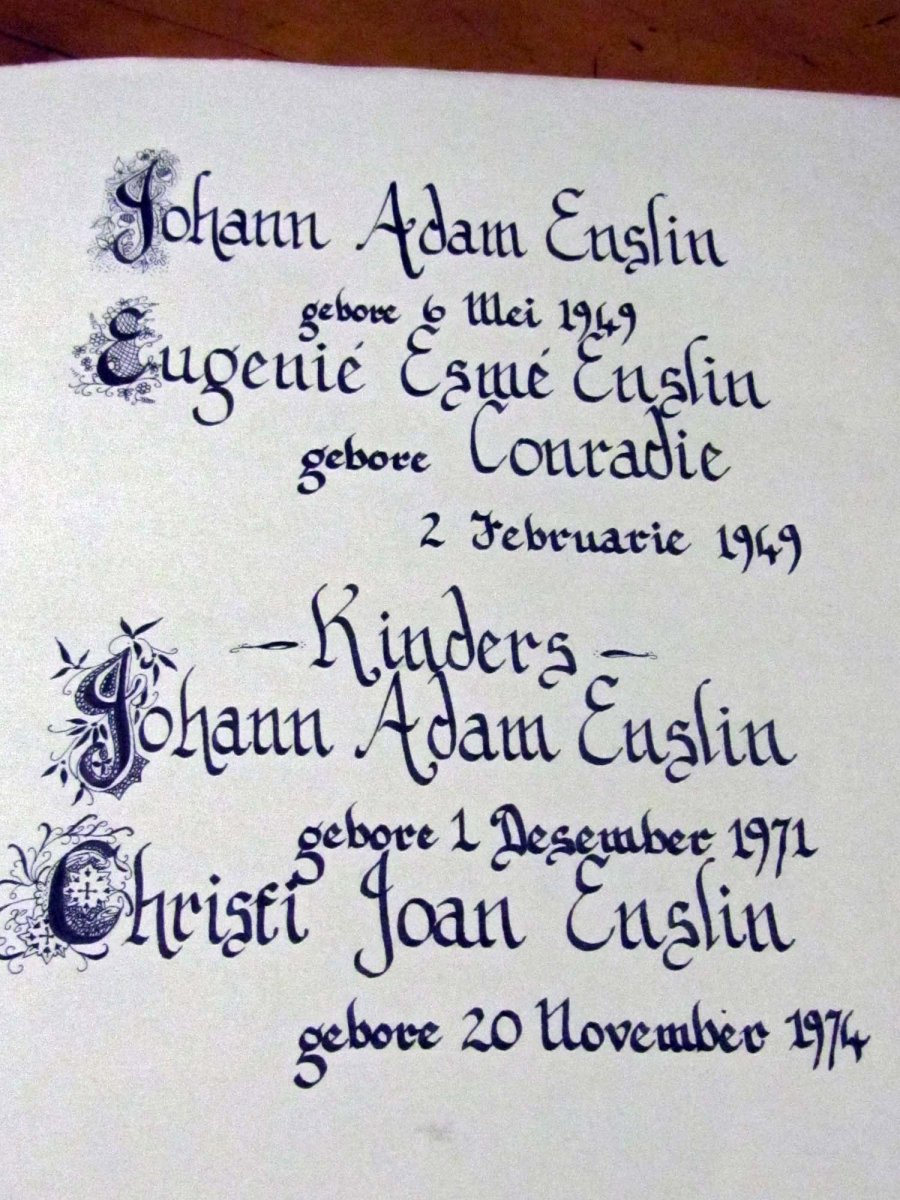 Johann Adam Enslin
gebore 6 Mei 1949
Eugenié Esmé Enslin
gebore Conradie
2 Februarie 1949
- Kinders -
Johann Adam Enslin
gebore 1 Desember 1971
Christi Joan Enslin
gebore 20 November 1974